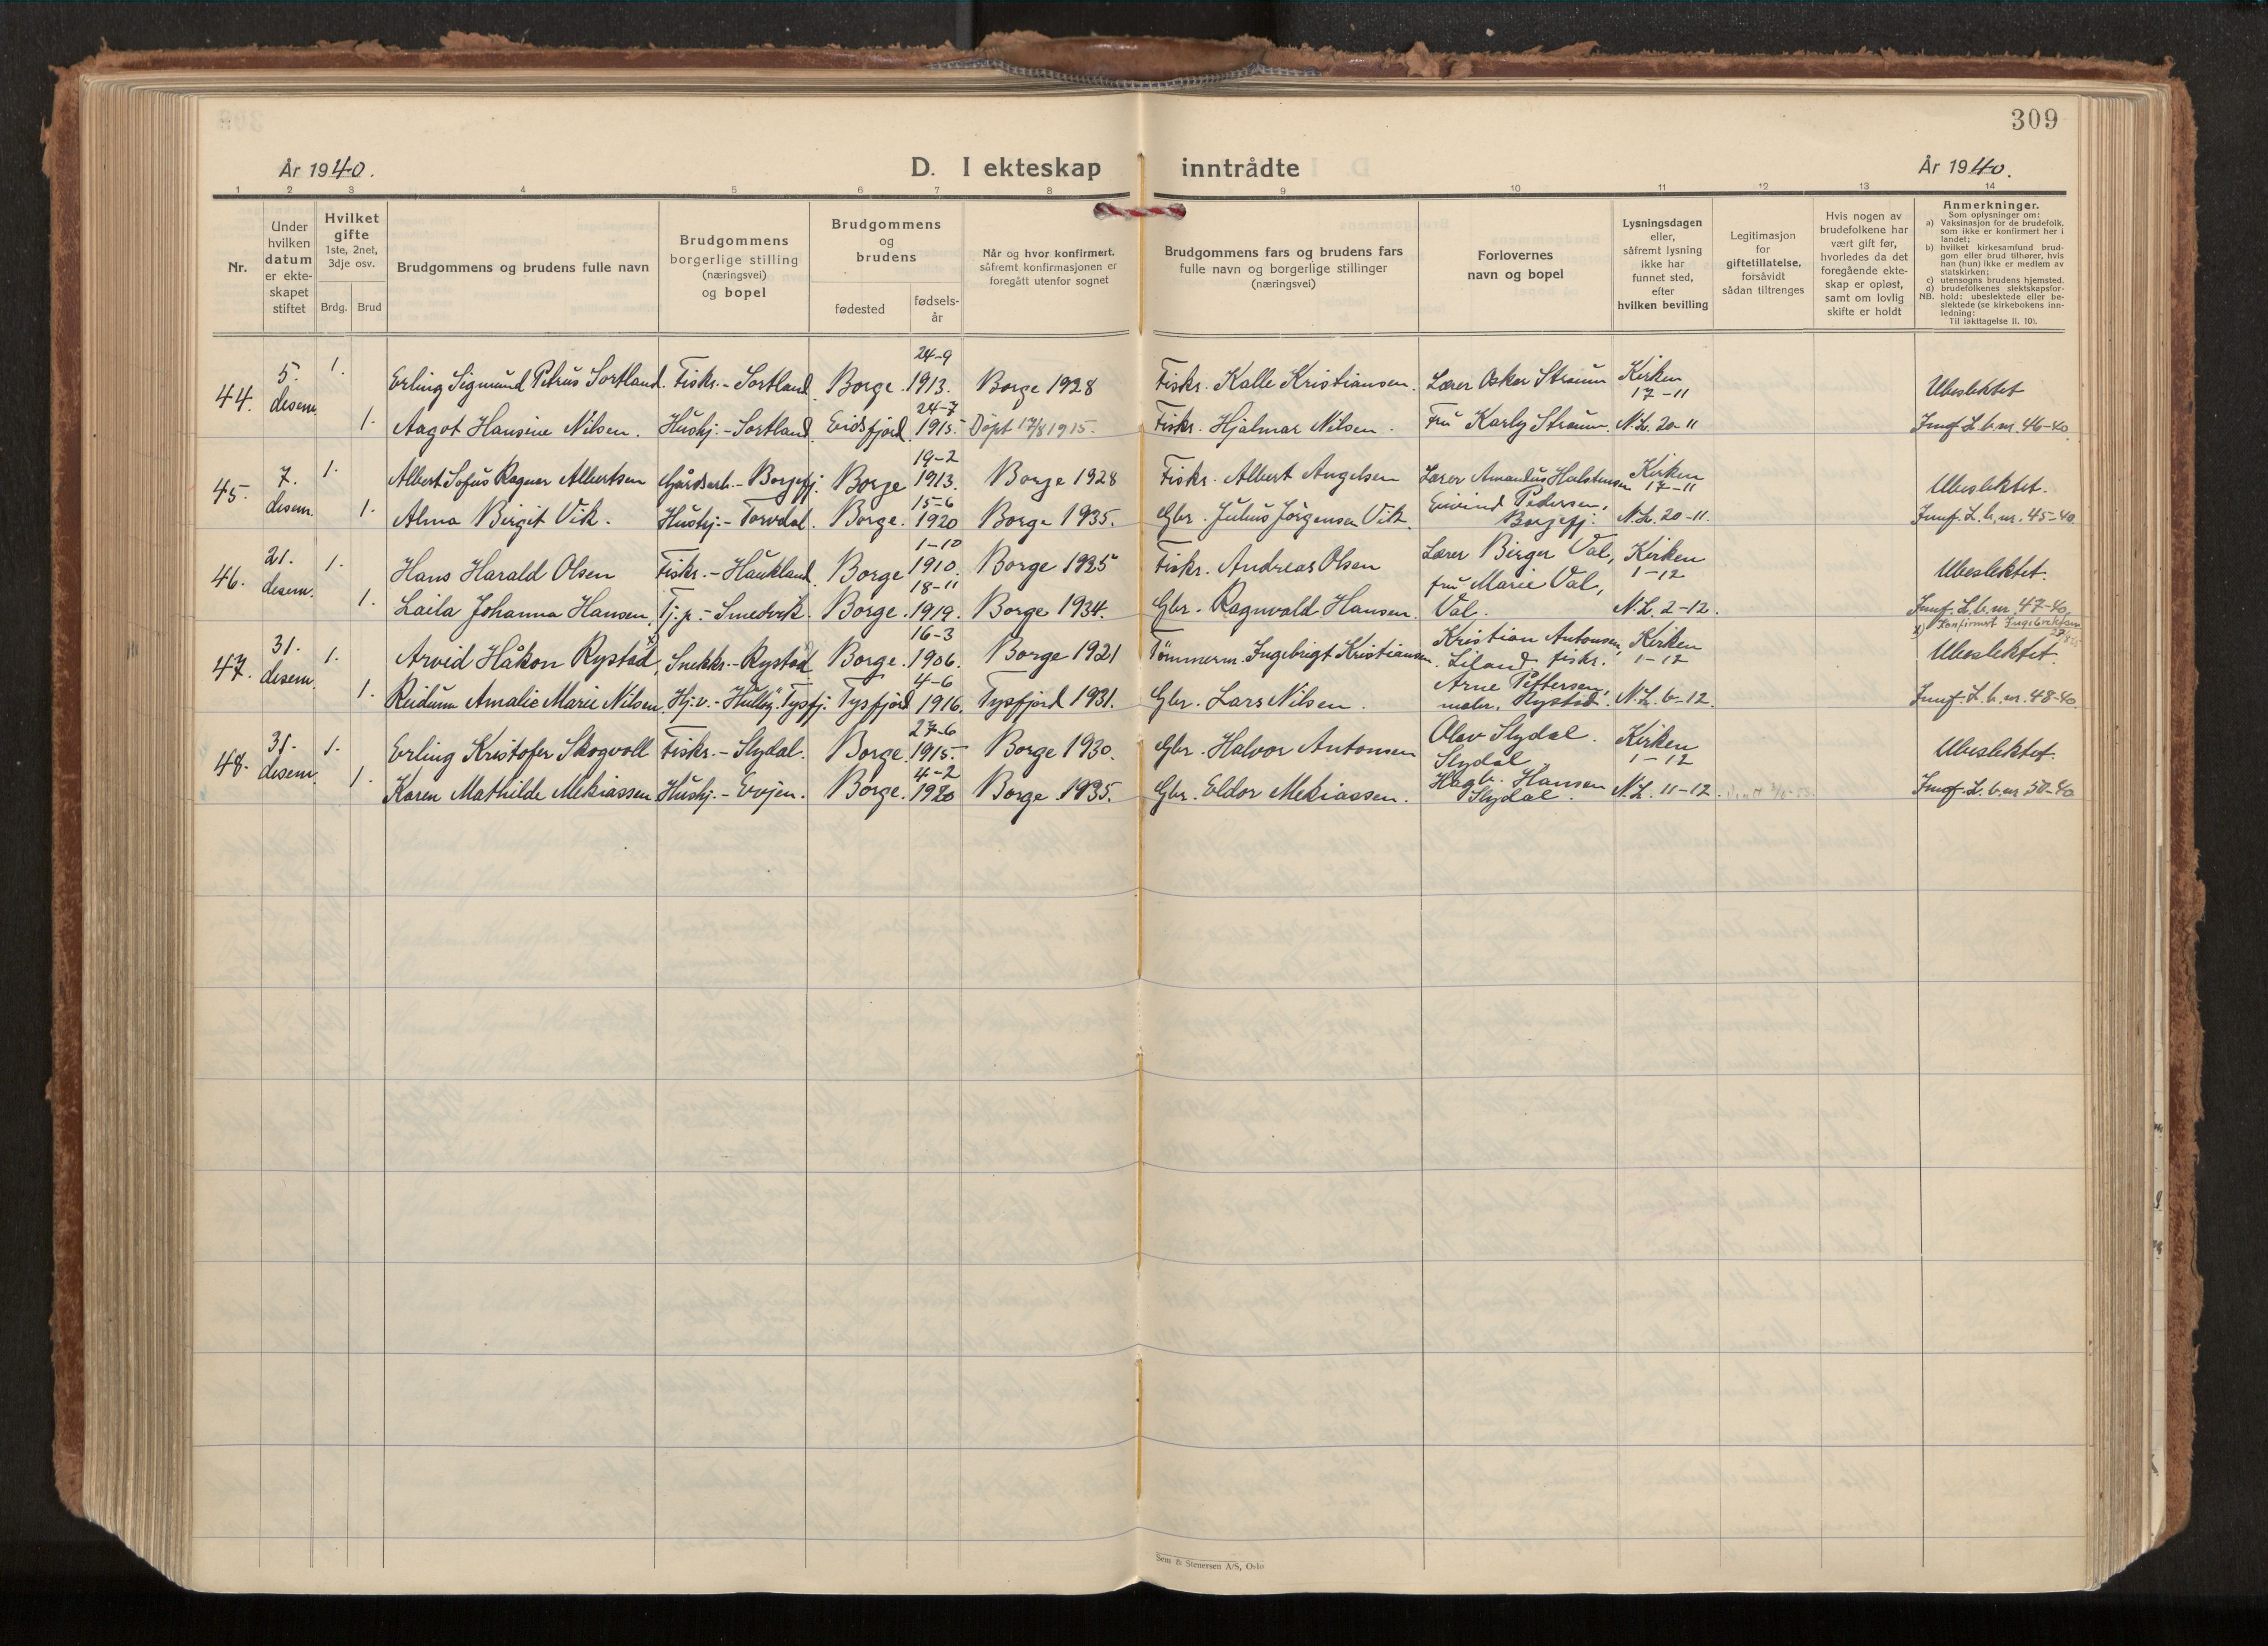 309
År 1940.
D. I ekteskap inntrådte
År 1940.
1 2 3 4 5 6 7 8 9 10 11 12 13 14
Nr.
Under hvilken datum er ekte-skapet stiftet
Hvilket gifte
1ste, 2net, 3dje osv.
Brdg. Brud
Brudgommens og brudens fulle navn
Brudgommens borgerlige stilling (næringsvei) og bopel
Brudgommens og brudens
fødested
fødsels-år
Når og hvor konfirmert, såfremt konfirmasjonen er foregått utenfor sognet
Brudgommens fars og brudens fars fulle navn og borgerlige stillinger (næringsvei)
Forlovernes navn og bopel
Lysningsdagen eller, såfremt lysning ikke har funnet sted, efter hvilken bevilling
Legitimasjon for giftetillatelse, forsåvidt sådan tiltrenges
Hvis nogen av brudefolkene har vært gift før, hvorledes da det foregående ekte-skap er opløst, samt om lovlig skifte er holdt
Anmerkninger.
Som oplysninger om:
a) Vaksinasjon for de brudefolk, som ikke er konfirmert her i landet;
b) hvilket kirkesamfund brud-gom eller brud tilhører, hvis han (hun) ikke er medlem av statskirken;
c) utensogns brudens hjemsted.
d) brudefolkenes slektskapsfor-hold: ubeslektede eller be-slektede (se kirkebokens inn-ledning:
NB. Til iakttagelse II. 10).
44. 5. desem. 1. Erling Sigmund Petrus Sortland. Fiskr. - Sortland. Borge. 24-9 1913. Borge 1928 Fiskr. Kalle Kristiansen. Lærer Oskar Straum Kirken 17-11 Ubeslektet
1. Aagot Hansine Nilsen. Hushj. - Sortland. Eidsfjord. 24-7 1915. Døpt 17/8 1915. Fiskr. Hjalmar Nilsen. Fru Karly Straum. N.L. 20-11 Jmf. L.b.nr. 46-40
45. 7. desem. 1. Albert Sofus Ragner Albertsen Gårdsarb. - Borgefj. Borge 19-2 1913. Borge 1928 Fiskr. Albert Angelsen Lærer Amandus Halstensen Kirken 17-11 Ubeslektet.
1. Alma Birgit Vik. Hushj. - Torvdal. Borge. 15-6 1920 Borge 1935. Gbr. Julius Jörgensen Vik. Eivind Pedersen, Borgefj. N.L. 20-11. Jmf. L.b.nr. 45-40
46. 21. desem. 1. Hans Harald Olsen Fiskr. - Haukland. Borge 1-10 1910. Borge 1925 Fiskr. Andreas Olsen Lærer Birger Val, Kirken 1-12 Ubeslektet.
1. Laila Johanna Hansen. Tj.p. - Smedvik. Borge. 18-11 1919. Borge 1934. Gbr. Ragnvald Hansen. fru Marie Val, Val. N.L. 2-12. Jmf. L.b.nr. 47-40
x) Konfirmert Ingebrektsen
47. 31. desem. 1. Arvid Håkon Rystad, Snekkr. - Rystad. Borge. 16-3 1906. Borge 1921 Tømmerm. Ingebrigt Kristiansen. Kristian Antonsen, Liland, fiskr. Kirken 1-12 Ubeslektet.
1. Reidunn Amalie Marie Nilsen. Hj.v. - "Hulløy" Tysfj. Tysfjord 4-6 1916. Tysfjord 1931. Gbr. Lars Nilsen. Arne Pettersen, maler, Rystad. N.L. 6-12. Jmf. L.b.nr. 48-40.
48. 31. desem. 1. Erling Kristofer Skogvoll Fiskr. - Slydal. Borge. 27-6 1915. Borge 1930. Gbr. Halvor Antonsen Olav Slydal. Slydal. Kirken 1-12 Ubeslektet.
1. Karen Mathilde Mekiassen Hushj. - Evjen. Borge. 4-2 1920 Borge 1935. Gbr. Eldor Mekiassen. Hagb. Hansen Slydal. N.L. 11-12. Jmf. L.b.nr. 50-40
Sem & Stenersen A/S, Oslo